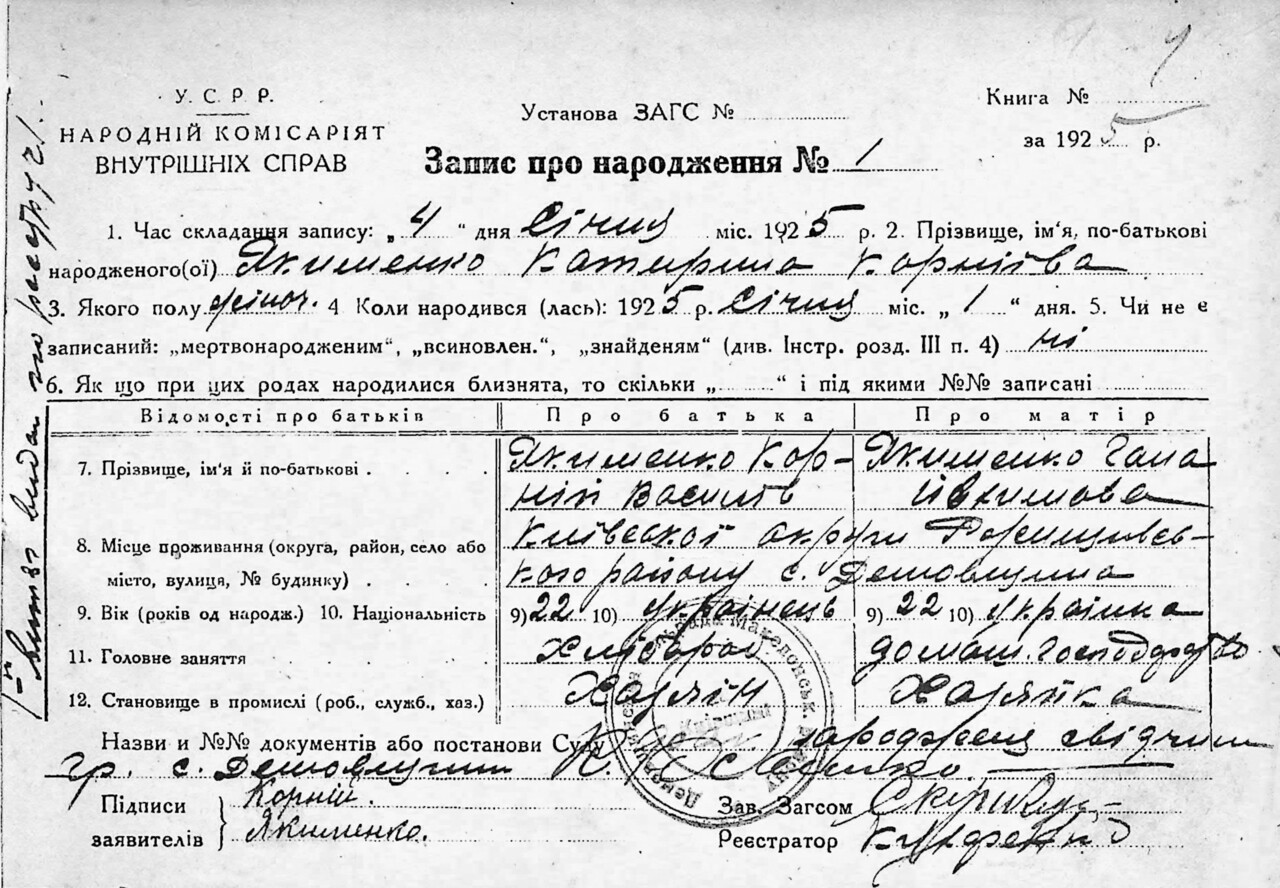 У. С. Р. Р.
НАРОДНІЙ КОМІСАРІЯТ
ВНУТРІШНІХ СПРАВ
Установа ЗАГС №
Книга №
за 1925 р.
Запис про народження № 1
1. Час складання запису: „4“ дня Січня міс. 1925 р. 2. Прізвище, ім'я, по-батькові
народженого(ої) Якименко Катерина Корніїва
3. Якого полу жіноч. 4 Коли народився (лась): 1925 р. Січня міс. „1“ дня. 5. Чи не є
записаний: „мертвонародженим“, „всиновлен.“, „знайденям“ (див. Інстр. розд. III п. 4) ні
6. Як що при цих родах народилися близнята, то скільки „ “ і під якими №№ записані
Відомості про батьків Про батька Про матір
7. Прізвище, ім'я й по-батькові . . . . Якименко Кор- Якименко Гана
ній Василів Ївхимова
8. Місце проживання (округа, район, село або Київської округи
місто, вулиця, № будинку) . . . . кого району с.
9. Вік (років од народж.) 10. Національність 9) 22 10) Українець 9) 22 10) Українка
11. Головне заняття . . . . Хлібороб домаш. господарство
12. Становище в промислі (роб., служб., хаз.) Хазяїн Хазяйка
Назви и №№ документів або постанови Суду
гр. с.
Підписи Корній
заявителів Якименко.
Зав. Загсом
Реєстратор